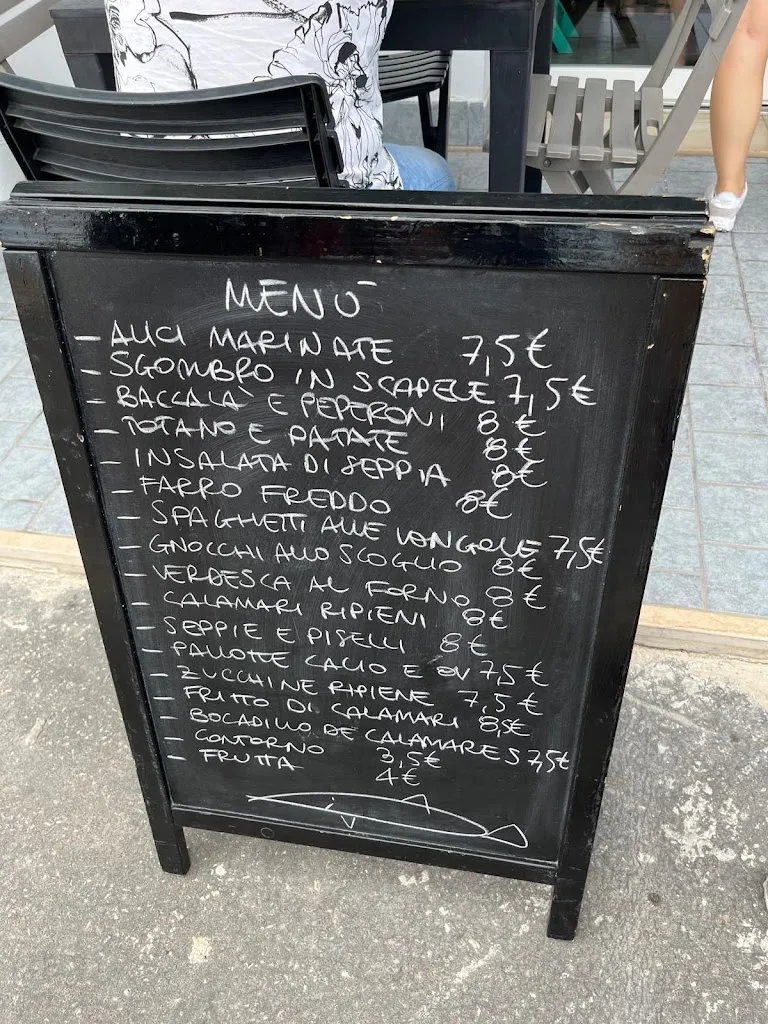 MENÙ
- ALICI MARINATE 7,5€
- SGOMBRO IN SCAPECE 7,5€
- BACCALÀ E PEPERONI 8€
- TOTANO E PATATE 8€
- INSALATA DI SEPPIA 8€
- FARRO FREDDO 8€
- SPAGHETTI ALLE VONGOLE 7,5€
- GNOCCHI ALLO SCOGLIO 8€
- VERDESCA AL FORNO 8€
- CALAMARI RIPIENI 8€
- SEPPIE E PISELLI 8€
- PALLOTTE CACIO E OV 7,5€
- ZUCCHINE RIPIENE 7,5€
- FRITTO DI CALAMARI 8,5€
- BOCADILLO DE CALAMARES 7,5€
- CONTORNO 3,5€
- FRUTTA 4€